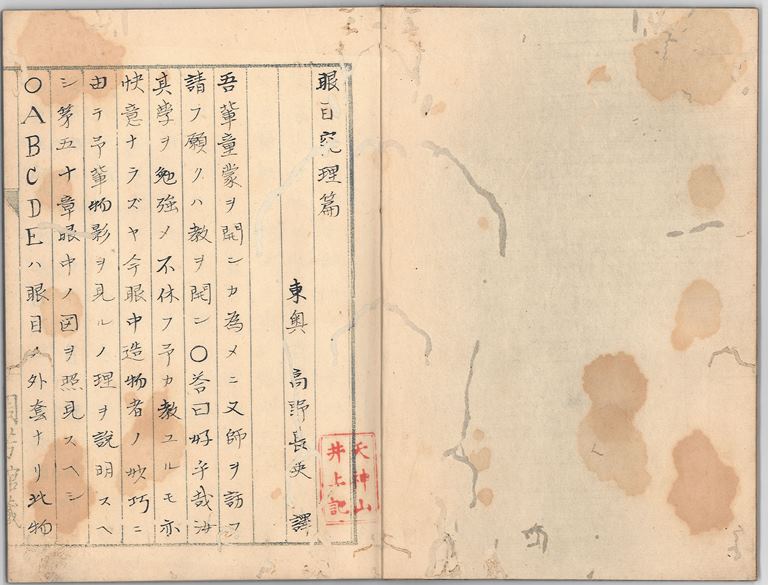 眼目究理篇
東奥 高野長英 譯
吾輩童蒙ヲ開ンカ為メニ又師ヲ訪フ
請フ願クハ教ヲ開ン〇答曰好乎哉汝
真学ヲ勉強メ不休フ予カ教ユルモ亦
快意ナラズヤ今眼中造物者ノ妙巧ニ
由テ予輩物影ヲ見ルノ理ヲ説明スヘ
シ第五十章眼中ノ図ヲ照見スヘシ
〇ABCDEハ眼目ノ外套ナリ此物
天神山
井上記